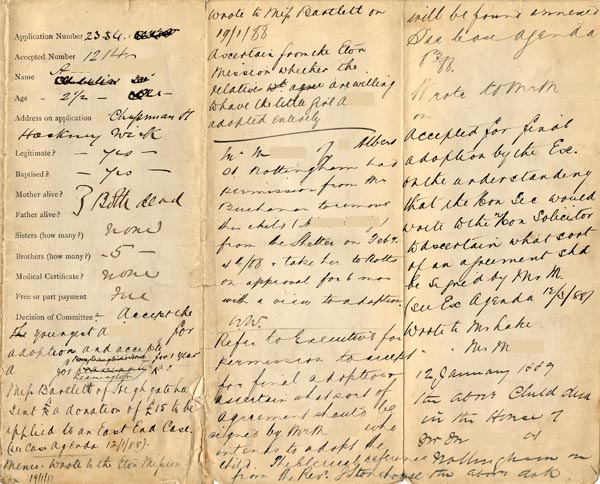 Application Number 2334
Accepted Number 1214
Name
Age - 2½ -
Address on application Chapman St
Hackney Wick
Legitimate? - yes -
Baptised? - yes -
Mother alive?
Father alive? } Both dead
Sisters (how many?) none
Brothers (how many?) - 5 -
Medical Certificate? none
Free or part payment free
Decision of Committee Accept the
youngest A for
adoption and accept
for 1 year
Leamington
Miss Bartlett of Highgate has
sent £ a donation of £15 to be
applied to an East End Case.
(see Case Agenda 12/1/88).
Memo. Wrote to the Eton Mission
on 19/1/88
Wrote to Miss Bartlett on
19/1/88
Ascertain from the Eton
Mission whether the
relatives are willing
to have the little Girl A
adopted entirely
Mr M of Albert
St Nottingham had
permission from Mr
Buchanan to remove
this child (A
from the Shelter on Feby.
4th/88 & take her to Notts
on approval for 6 mos
with a view to adoption.
W.W.
Refer to Executive for
permission to accept
for final adoption &
ascertain what sort of
agreement should be
signed by Mr M who
intends to adopt the
child. The Clerical reference
from the Rev. J Stonehouse
will be found annexed
Case Agenda
Wrote to Mr M
on
Accepted for final
adoption by the Ex.
on the understanding
that the Hon Sec would
write to the Hon Solicitor
to ascertain what sort
of an agreement shd
be signed by Mr M.
(see Ex Agenda 12/3/88)
Wrote to Mr Lake
" Mr M
12 January 1889
the above Child died
in the House of
Mr M at
Nottingham on
the above date